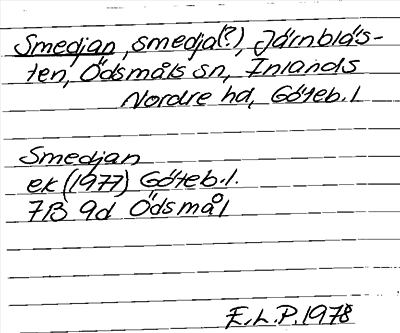 Smedjan, smedja(?), Järnblås-
ten, Ödsmåls sn, Inlands
Nordre hd, Göteb.l
Smedjan
ek (1977) Göteb.l.
7B 9d Ödsmål
E.L.P. 1978